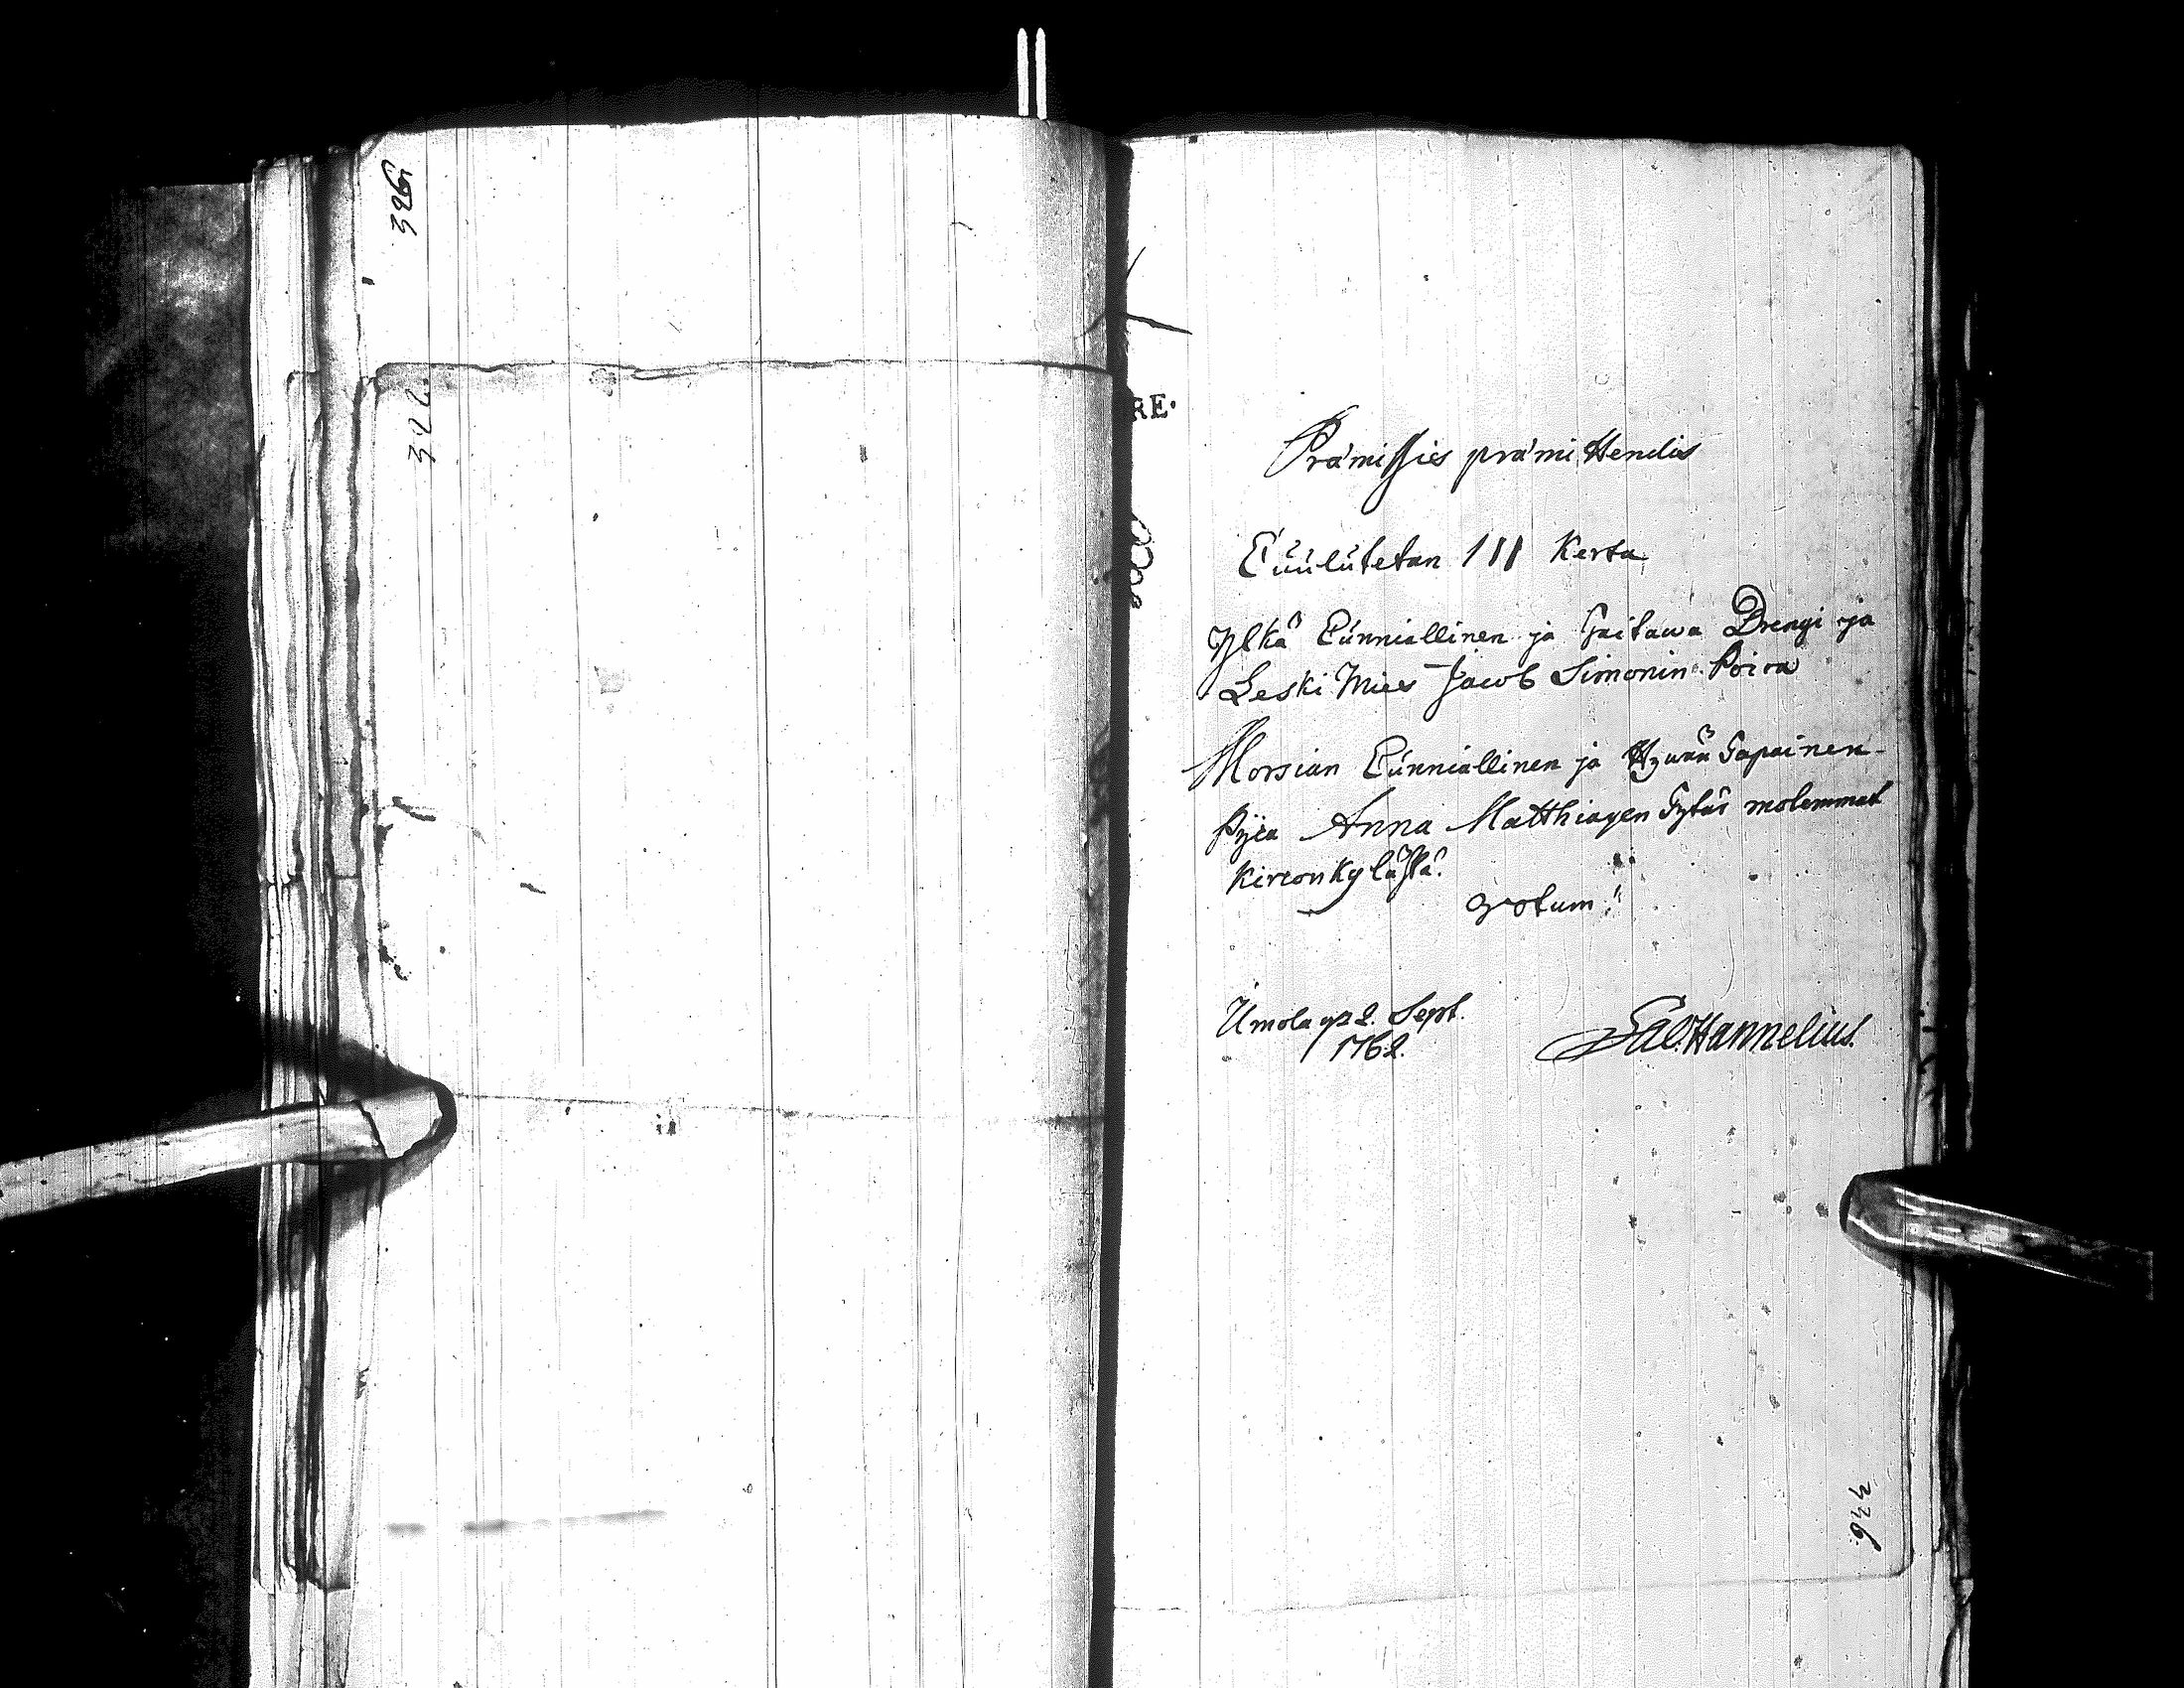 396
322.
RE.
Præmissies præmittendis
Cuulutetan III Kerta
Ylkä Cunniallinen ja Taitawa Drengi ja
Leski Mies Jacob Simonin Poica
Morsian Cunniallinen ja Hywän Tapainen
Pijca Anna Matthiayen Tytär molemmat
Kirconkylästä.
Votum!
Umola 2. Sept.
1762.
Sal. Hannelius.
326.